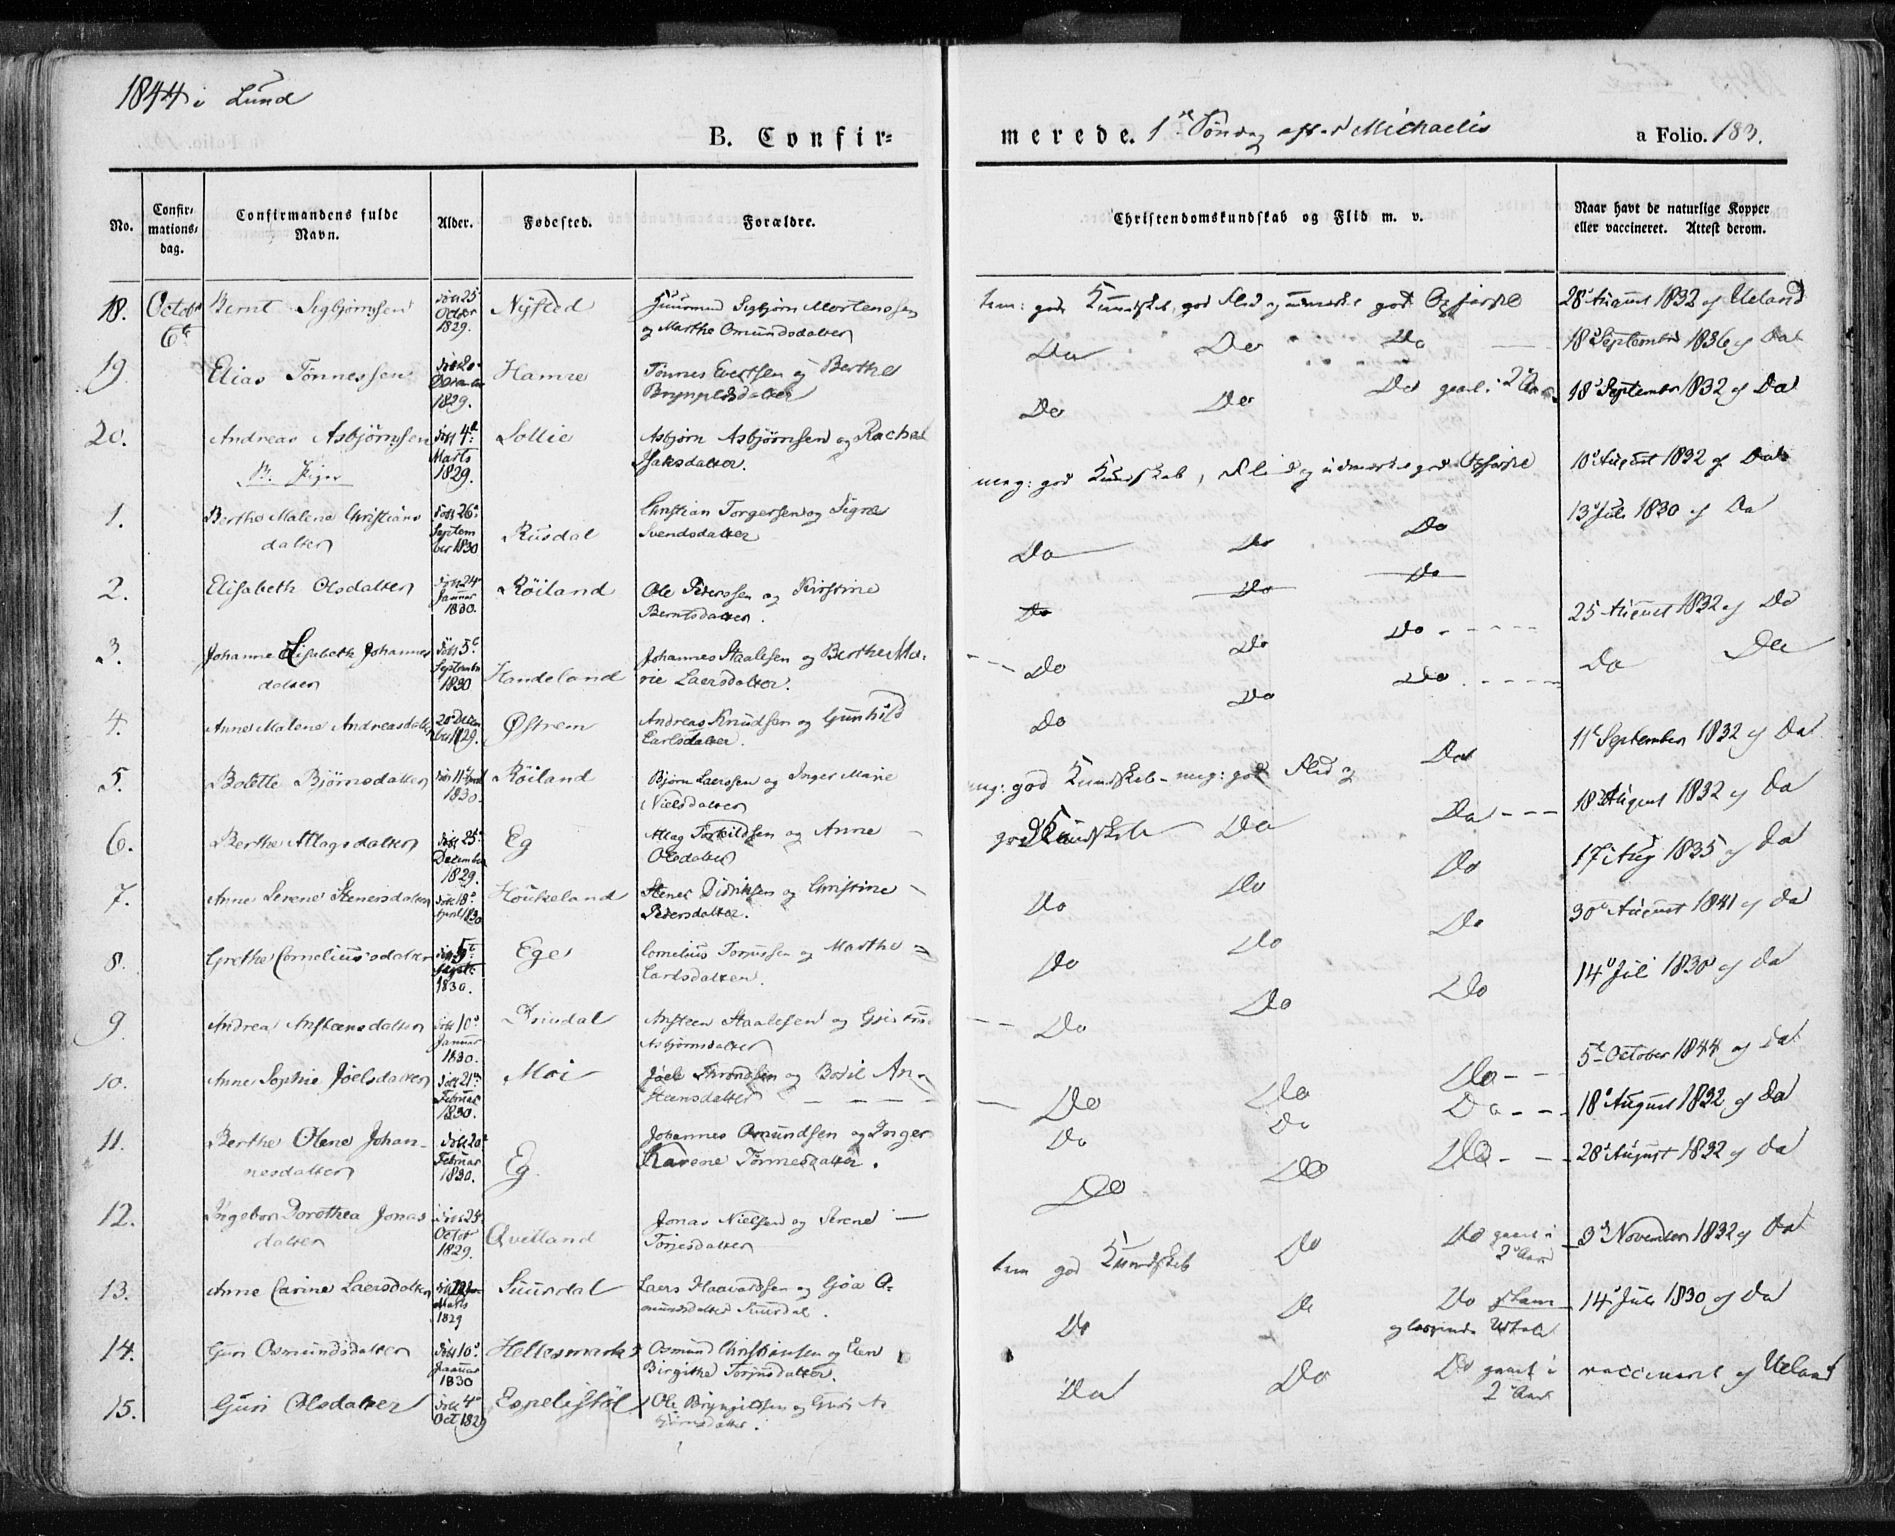 1844 i Lund
B. Confir=
merede. 1ste Søndag efter Michaelis
a Folio. 183.
No.
Confir-
mations-
dag.
Confirmandens fulde
Navn.
Alder.
Fødested.
Forældre.
Christendomskundskab og Flid m. v.
Naar havt de naturlige Kopper
eller vaccineret. Attest derom.
18. Octobr Bernt Sigbjørnsen født 25 Nysted Sigbjørn Mortenssen
6te Octbr 1829. og Marthe Omundsdatter
tem: god Kundskab, god Flid og udmærket god Opførsel 28 August 1832 af Ueland
19. Elias Tønnessen født 20 1829. Hamre Tønnes Evertsen og Berthe
datter
Do Do Do 18 September 1836 af Do
20. Andreas Asbjørnsen født 4de Marts 1829. Sollie Asbjørn Asbjørnsen og Rachel
Isaksdatter.
Do Do Do gaaet i 2 Aar 18 September 1832 af Do
Piger
1. Berthe Malene Christians født 26 Septem Rusdal Christian Torgersen og Sigrie
datter ber 1830 Svendsdatter
meg: god Kundskab, Flid og udmærket god Opførsel 10 August 1832 af Do
2. Elisabeth Olsdatter født 24 Januar 1830. Røiland Ole Pederssen og Kirstine
Berntsdatter.
Do Do Do 13 Juli 1830 af Do
Do Do Do
3. Johanne Elisabeth Johannes født 5te September 1830 Handeland Johannes Staalesen og Berthe Ma-
datter rie Laersdatter.
Do Do Do 25 August 1832 af Do
4. Anne Malene Andreasdatter 20 Decem ber 1829. Østrem Andreas Knudsen og Gunhild
Carlsdatter.
Do Do Do Do Do
5. Bolette Bjørnsdatter født 11 1830. Røiland Bjørn Laerssen og Inger Marie
Nielsdatter
meg: god Kundskab - meg: god Flid og Do 11te September 1832 af Do
6. Berthe Atlagsdatter født 25 December 1829. Eg Atlag Torkildsen og Anne
Olsdatter
god Kundskab Do Do 18 August 1832 af Do
7. Anne Serene Stenersdatter født 18 April 1830 Houkeland Stener Didriksen og Christine
Pedersdatter.
Do Do Do 17 Aug 1835 af Do
8. Grethe Corneliusdatter født 5te 1830. Ege Cornelius Torjussen og Marthe
Carlsdatter.
Do Do Do 30 August 1841 af Do
9. Andrea Anstensdatter født 10 Januar 1830. Ansteen Staalesen og
Asbjørnsdatter
Do Do Do 14 Juli 1830 af Do
10. Anne Sophie Joelsdatter født 21 Februar 1830. Moi Joel Throndsen og Bodil An-
steensdatter
Do Do Do 5te October 1844 af Do
11. Berthe Olene Johan- født 20 Februar 1830. Eg. Johannes Omundsen og Inger
nesdatter Karene Tønnesdatter.
Do Do Do 18 August 1832 af Do
12. Ingebor Dorothea Jonas født 25 Octobr 1829. Qvelland Jonas Nielsen og Serene
datter Torjesdatter
Do Do Do 28 August 1832 af Do
13. Anne Carine Laersdatter født Marts 1829 Suurdal Laers Haavardssen og Gjøa O-
mundsdatter Suurdal.
tem god Kundskab Do Do gaaet i 2 Aar 3de November 1832 af Do
14. Guri Osmundsdatter født 10 Januar 1830 Hellesmark Osmund Christiansen og Elen
Birgithe Torjusdatter.
Do Do Do stam og læspende Udtale 14 Juli 1830 af Do
15. Guri Olsdatter født 4 Oct 1829 Espelistøl Ole Bryngilssen og Guri As
bjørnsdatter.
Do Do Do gaaet i 2 Aar vaccineret af Ueland